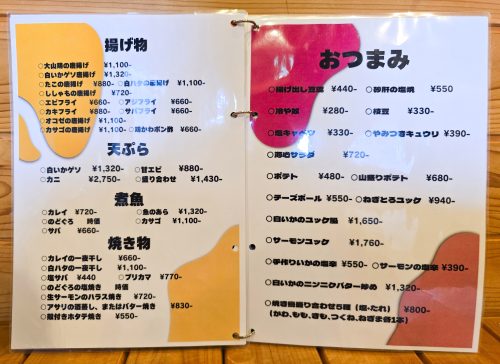 揚げ物
○大山鶏の唐揚げ ¥1,100-
○白いかゲソ唐揚げ ¥1,320-
○たこの唐揚げ ¥880- ○白ハタの唐揚げ ¥1,100-
○ししゃもの唐揚げ ¥720-
○エビフライ ¥660- ○アジフライ ¥660-
○カキフライ ¥880- ○サバフライ ¥660-
○オコゼの唐揚げ ¥1,100-
○カサゴの唐揚げ ¥1,100- ○鶏かわポン酢 ¥660-
天ぷら
○白いかゲソ ¥1,320- ○甘エビ ¥880-
○カニ ¥2,750- ○盛り合わせ ¥1,430-
煮魚
○カレイ ¥720- ○魚のあら ¥1,320-
○のどぐろ 時価 ○カサゴ ¥1,100-
○サバ ¥660-
焼き物
○カレイの一夜干し ¥660-
○白ハタの一夜干し ¥1,100-
○塩サバ ¥440 ○ブリカマ ¥770-
○のどぐろの塩焼き 時価
○生サーモンのハラス焼き ¥720-
○アサリの酒蒸し、またはバター焼き ¥830-
○殻付きホタテ焼き ¥550-
おつまみ
○揚げ出し豆腐 ¥440- ○砂肝の塩焼 ¥550
○冷や奴 ¥280- ○枝豆 ¥330-
○塩キャベツ ¥330- ○やみつきキュウリ ¥390-
○海鮮サラダ ¥720-
○ポテト ¥480- ○山盛りポテト ¥680-
○チーズボール ¥550- ○ねぎとろユッケ ¥940-
○白いかのユッケ風 ¥1,650-
○サーモンユッケ ¥1,760-
○手作りいかの塩辛 ¥550- ○サーモンの塩辛 ¥390-
○白いかのニンニクバター炒め ¥1,320-
○焼き鳥盛り合わせ5種（塩・たれ） ¥800-
（かわ、もも、きも、つくね、ねぎま各1本）